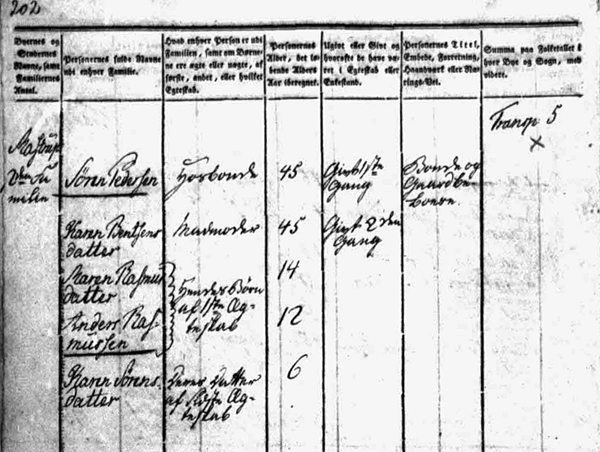 202
Byernes og
Stædernes
Navne, samt
Familiernes
Antal.
Personernes fulde Navne
udi enhver Familie.
Hvad enhver Person er udi
Familien, samt om Børne-
ne ere ægte eller uægte, af
første, andet, eller hvilket
Egteskab.
Personernes
Alder, det lø-
bende Alders
Aar iberegnet.
Ugivt eller Givt og
hvorofte de have væ-
ret i Egteskab eller
Enkestand.
Personernes Titel,
Embede, Forretning,
Haandværk eller Næ-
rings-Vei.
Summa paa Folketallet i
hver Bye og Sogn, med
videre.
Transp 5
×
Mastrup
Søren Pedersen
Hosbonde
45
Givt 1ste
Gang
Bonde og
Gaardbe-
boere.
milie
Karen Bentsens
datter
Madmoder
45
Givt 2den
Gang
Maren Rasmus
datter
14
Hendes Børn
af 1ste Æg-
teskab
Anders Ras-
mussen
12
Karen Sørens
datter
Deres Datter
af sidste Æg-
teskab
6